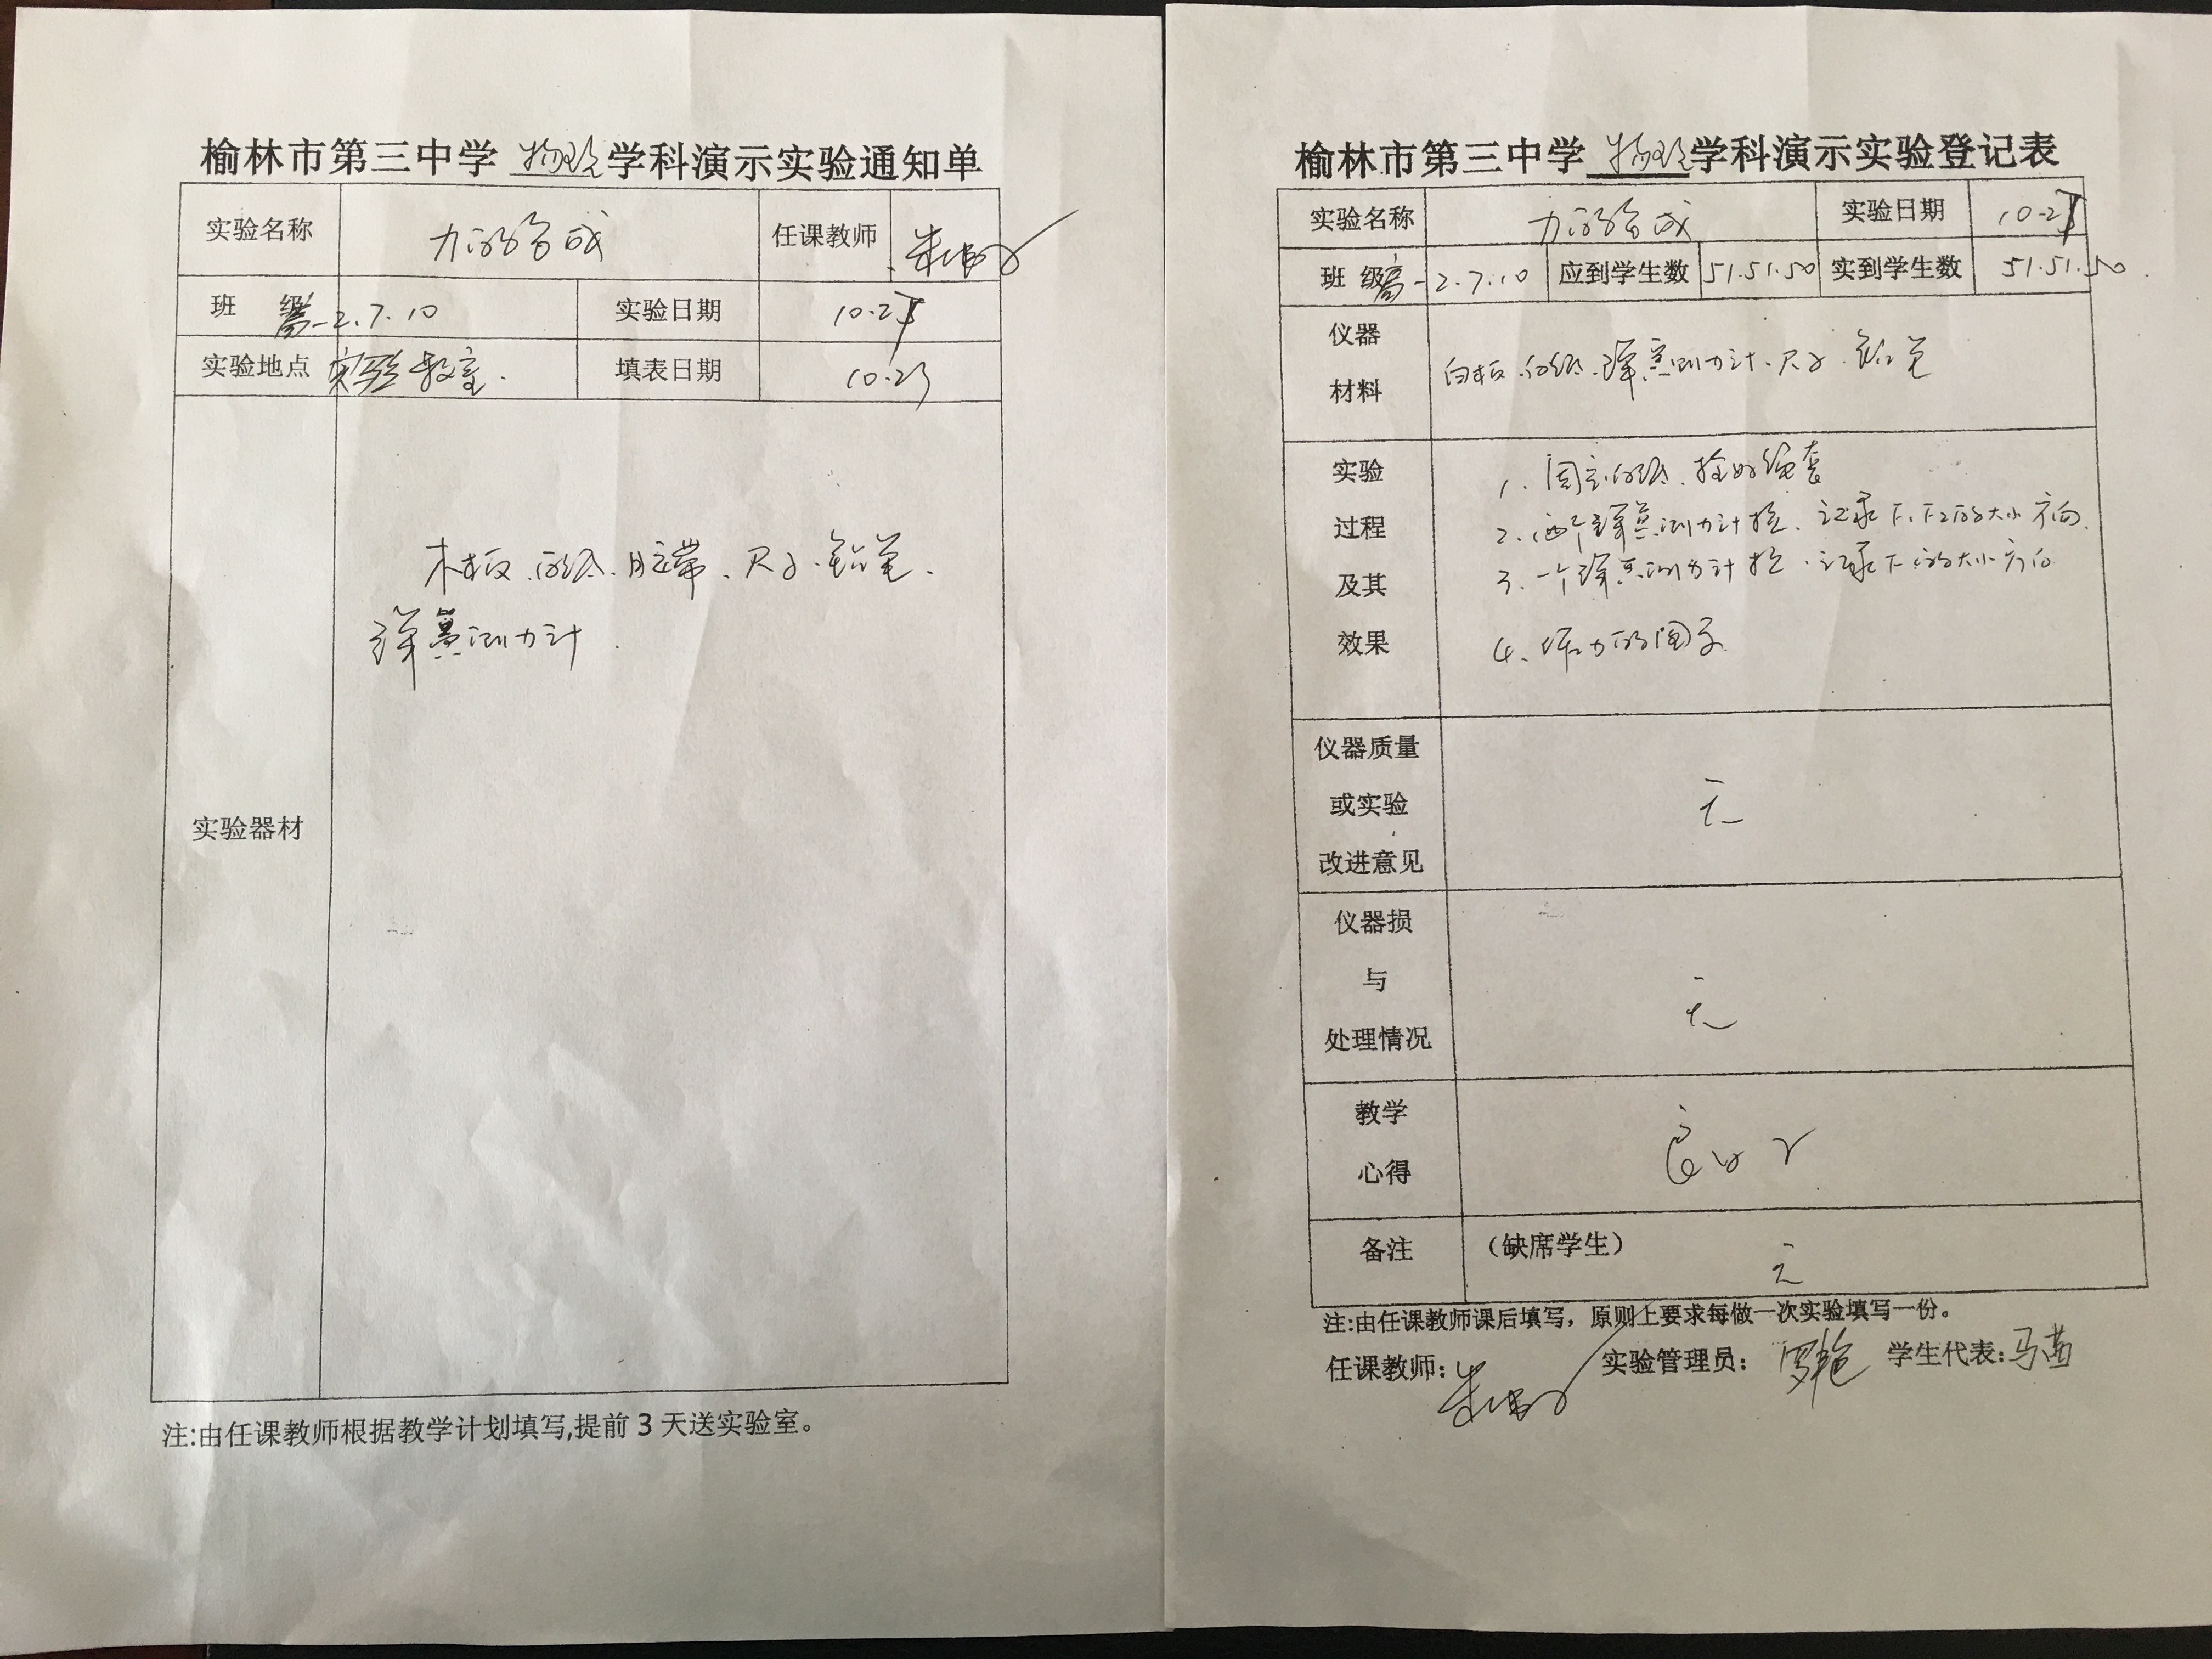 榆林市第三中学 物理 学科演示实验通知单
实验名称 力的合成 任课教师
班 级 高一2.7.10 实验日期 10.25
实验地点 实验教室. 填表日期 10.23
实验器材
木板、白纸、胶带、尺子、铅笔、
弹簧测力计.
注:由任课教师根据教学计划填写,提前3天送实验室。
榆林市第三中学 物理 学科演示实验登记表
实验名称 力的合成 实验日期 10-25
班 级 高一2.7.10 应到学生数 51.51.50 实到学生数 51.51.50
仪器
材料
白板、白纸、弹簧测力计、尺子、铅笔
实验
过程
及其
效果
1、固定白纸、拴好绳套
2、两个弹簧测力计拉、记录F1、F2的大小方向.
3、一个弹簧测力计拉、记录F的大小方向
4、作力的图示
仪器质量
或实验
改进意见
无
仪器损
与
处理情况
无
教学
心得
良好
备注 （缺席学生）
无
注:由任课教师课后填写，原则上要求每做一次实验填写一份。
任课教师: 实验管理员: 罗艳 学生代表: 马茜